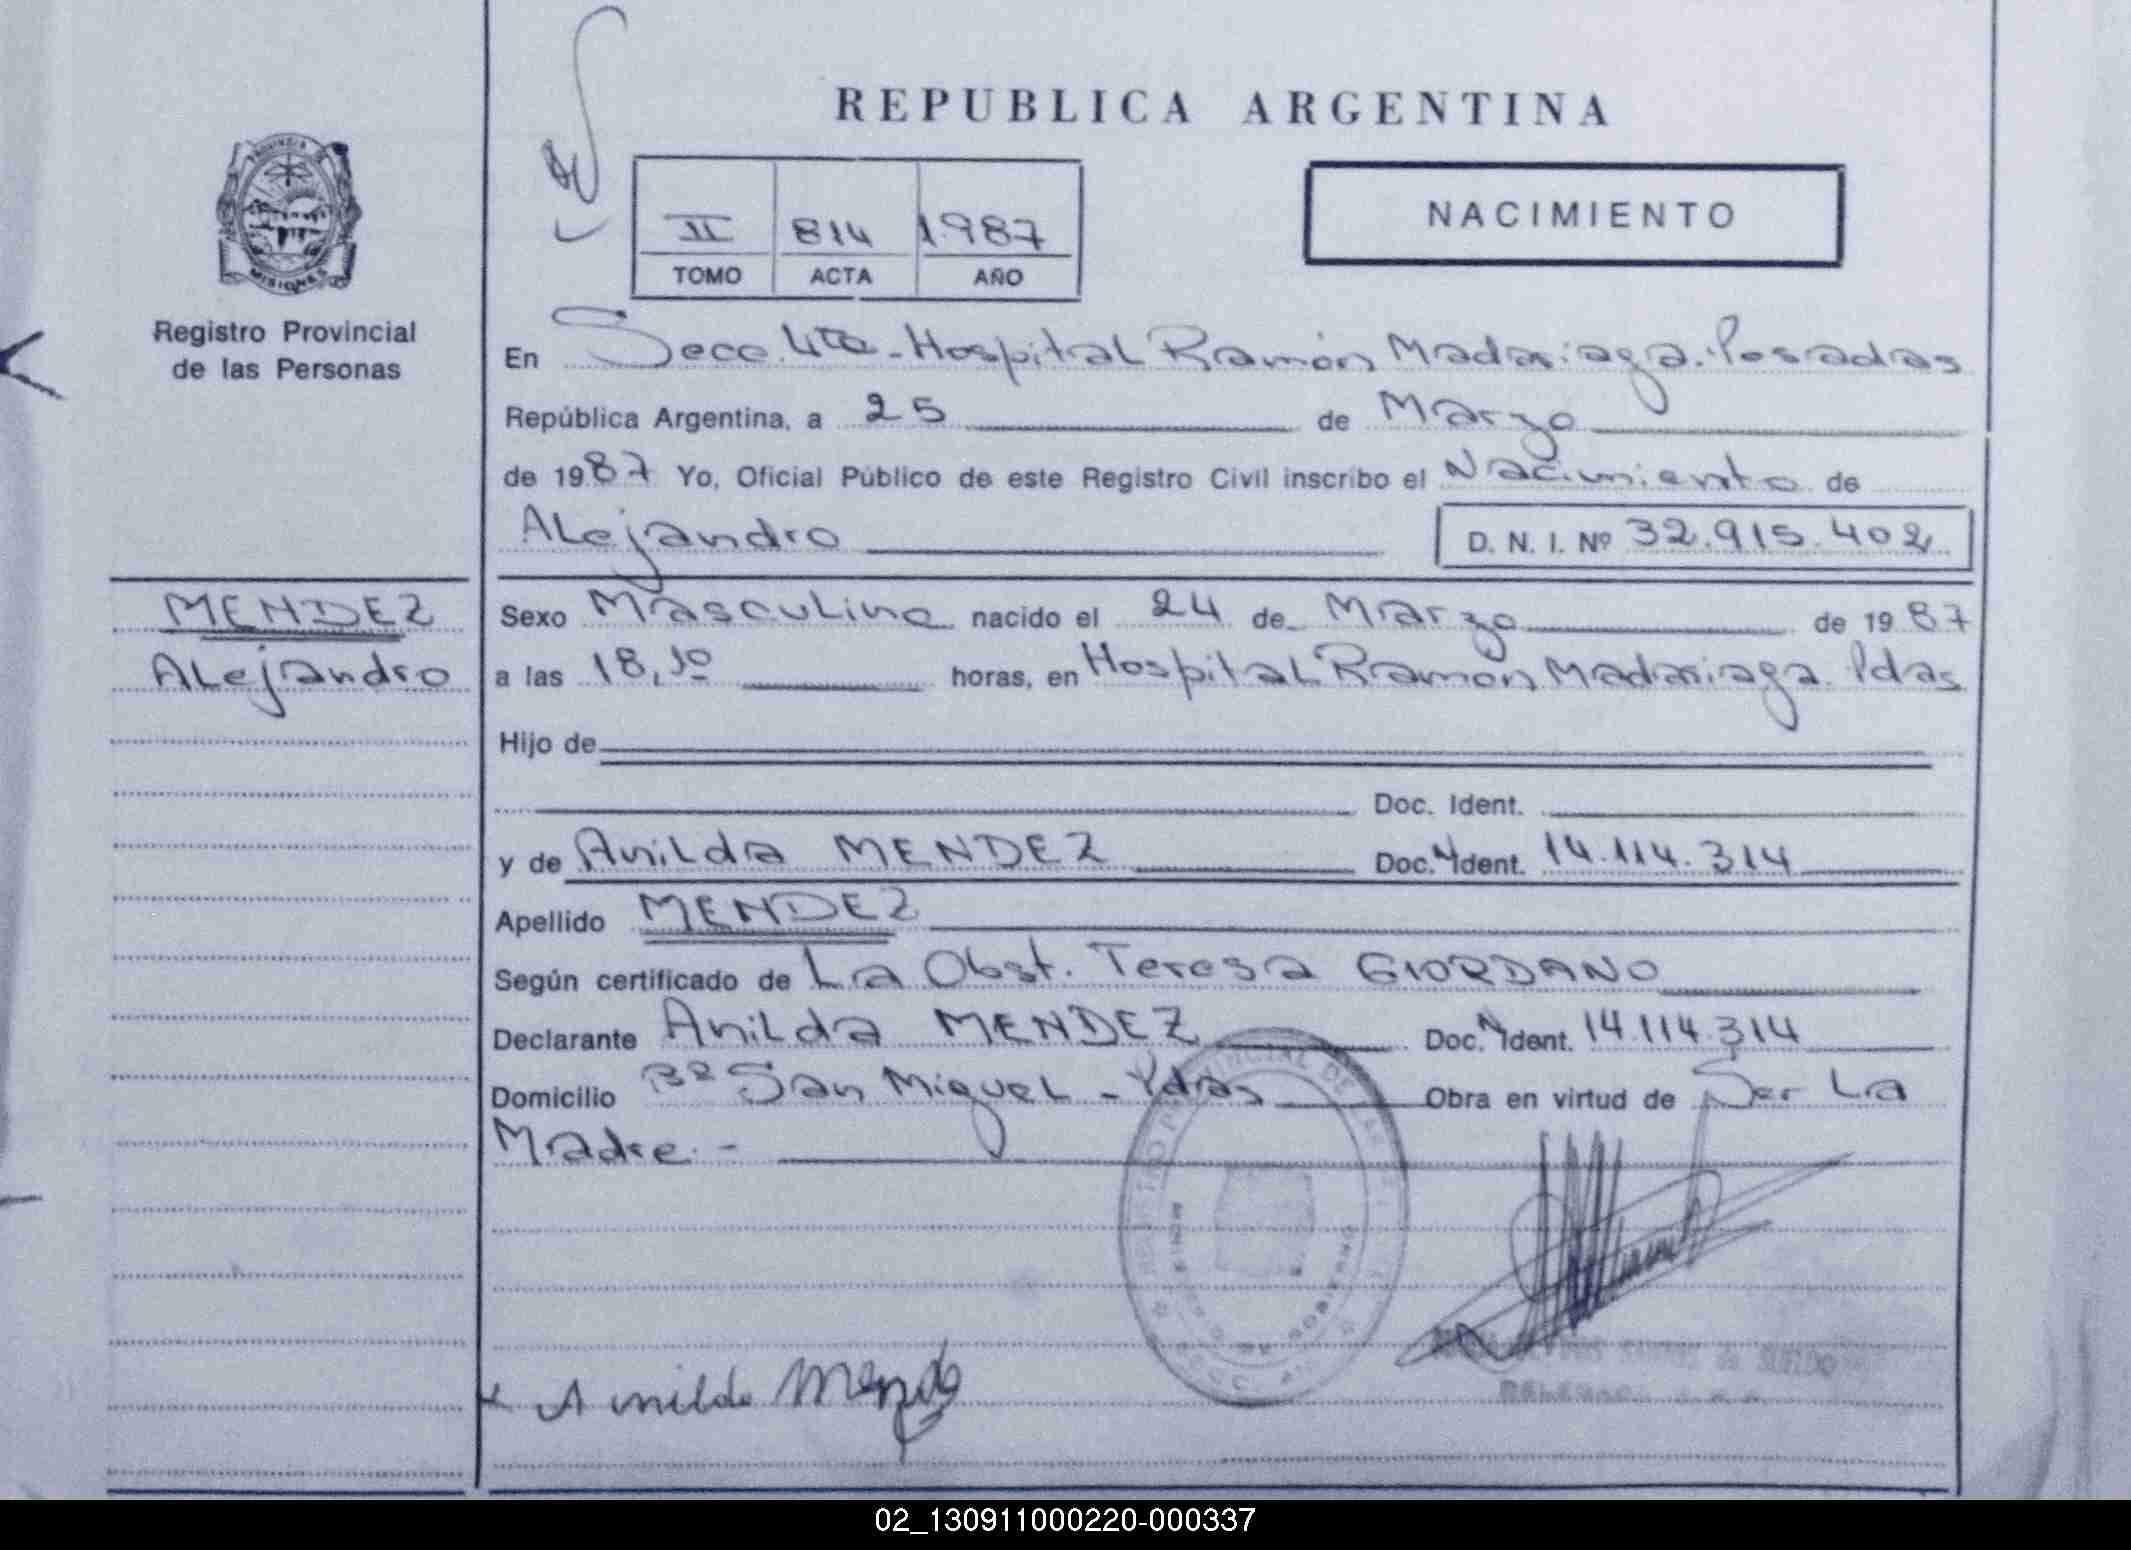 REPUBLICA ARGENTINA
PROVINCIA DE
MISIONES
Registro Provincial
de las Personas
II 814 1987
TOMO ACTA AÑO
NACIMIENTO
En Secc. 4ta - Hospital Ramón Madariaga. Posadas
República Argentina, a 25 de Marzo
de 1987 Yo, Oficial Público de este Registro Civil inscribo el Nacimiento de
Alejandro D. N. I. Nº 32.915.402
MENDEZ
Alejandro
Sexo Masculino nacido el 24 de Marzo de 1987
a las 18,10 horas, en Hospital Ramón Madariaga. Pdas
Hijo de
Doc. Ident.
y de Anilda MENDEZ Doc. Ident. 14.114.314
Apellido MENDEZ
Según certificado de La Obst. Teresa GIORDANO
Declarante Anilda MENDEZ Doc. Ident. 14.114.314
Domicilio Bº San Miguel - Pdas Obra en virtud de Ser La
Madre. -
Anilda Mendez
02_130911000220-000337